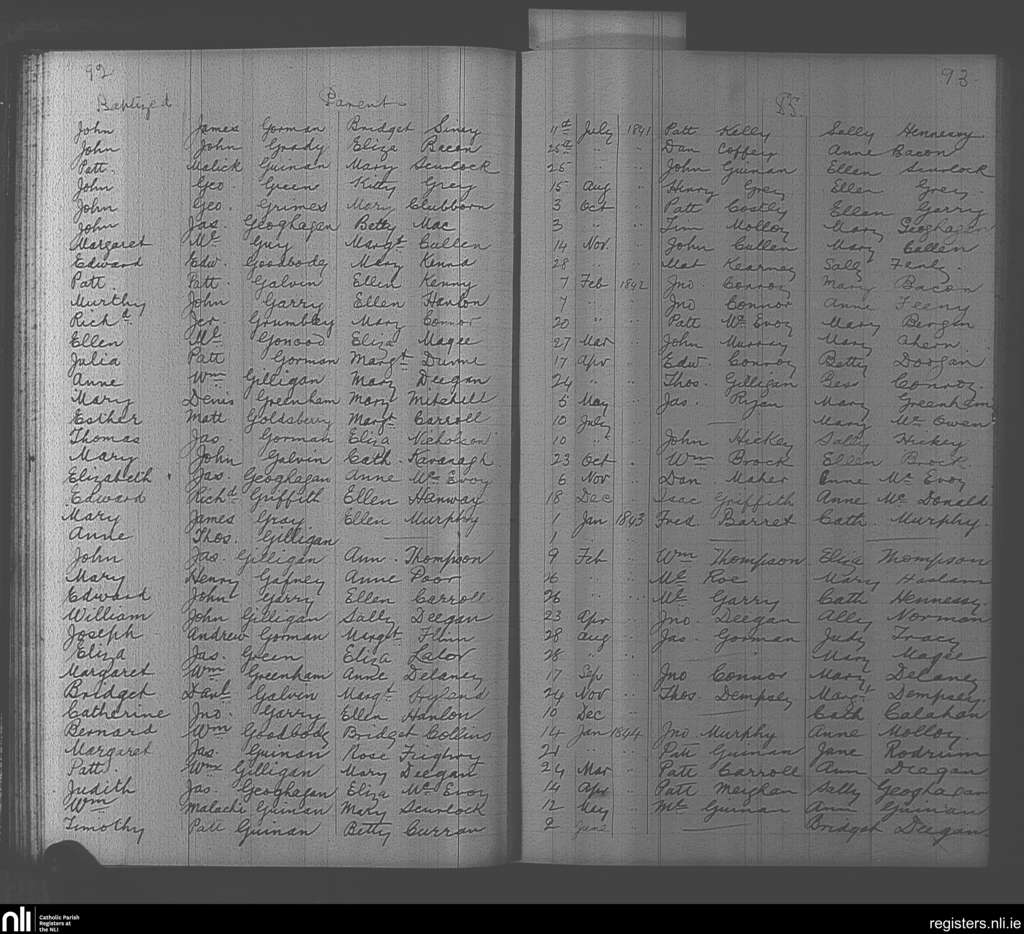 92
93
Baptized Parent SS.
John James Gorman Bridget Siney 11th July 1841 Patt Kelly Sally Hennessy
John John Grady Eliza Bacon 25th " " Dan Coffey Anne Bacon
Patt. Malick Guinan Mary Scurlock 25 " " John Guinan Ellen Scurlock
John Geo. Greene Kitty Grey 15 Aug " Henry Grey Ellen Grey.
John Geo. Grimes Mary Clubborn 3 Oct " Patt Costly Ellen Garry
John Jas. Geoghagen Betty Mac 3 " " Tim Molloy Mary Geoghagen
Margaret Ml. Guy Margt. Cullen 14 Nov. " John Cullen Mary Cullen
Edward Edw. Goodbody Mary Kenna 28 " " Mat Kearney Sally Fenly.
Patt. Patt. Galvin Ellen Kenny 7 Feb 1842 Jno. Conroy Mary Bacon
Murthy John Garry Ellen Hanlon 7 " " Jno Connor Anne Feeny
Richd. Jer. Grumbley Mary Connor 20 " " Patt Mc Evoy Mary Bergin
Ellen Ml. Gonood Eliza Magee 27 Mar " John Murray Mary Ahern.
Julia Patt Gorman Margt Dunne 17 Apr " Edw. Conroy Betty Dorgan
Anne Wm Gilligan Mary Deegan 24 " " Thos. Gilligan Bess Conroy.
Mary Denis Greenham Mary Mitchell 5 May " Jas. Ryan Mary Greenham
Esther Matt Goldsbury Margt. Carroll 10 July " — Mary Mc Owen
Thomas Jas. Gorman Eliza Nicholson 10 " " John Hickey Sally Hickey
Mary John Galvin Cath. Kavanagh. 23 Oct " Wm Brock Ellen Brock.
Elizabeth Jas. Geoghagan Anne Mc Evoy 6 Nov " Dan Maher Anne Mc Evoy
Edward Richd. Griffith Ellen Hanway 18 Dec " Isac Griffith Anne Mc Donald
Mary James Gray Ellen Murphy 1 Jan 1843 Fred. Barret Cath. Murphy.
Anne Thos. Gilligan — 1 " " — —
John Jas. Gilligan Ann. Thompson 9 Feb " Wm Thompson Eliza Thompson
Mary Henry Gafney Anne Poor 26 " " Ml. Roe Mary Haslam
Edward John Garry Ellen Carroll 26 " " Ml. Garry Cath Hennessy.
William John Gilligan Sally Deegan 23 Apr " Jno. Deegan Ally Norman
Joseph Andrew Gorman Margt. Flinn 28 Aug " Jas. Gorman Judy Tracy
Eliza Jas. Green Eliza Lalor 28 " " — Mary Magee
Margaret Wm Greenham Anne Delaney 17 Sep " Jno Connor Mary Delaney
Bridget Danl. Galvin Margt. Hyland 24 Nov " Thos. Dempsey Margt Dempsey.
Catherine Jno. Garry Ellen Hanlon 10 Dec " — Cath Calahan
Bernard Wm Goodbody Bridget Collins 14 Jan 1844 Jno Murphy Anne Molloy.
Margaret Jas. Guinan Rose 21 " " Patt Guinan Jane
Patt. Wm Gilligan Mary Deegan 24 Mar " Patt Carroll Ann Deegan
Judith Jas. Geoghagan Eliza Mc Evoy 14 Apr " Patt Meighan Sally Geoghagan
Wm Malachi Guinan Mary Scurlock 12 May " Ml. Guinan Ann Guinan
Timothy Patt Guinan Betty Curran 2 June " — Bridget Deegan.
nli Catholic Parish Registers at the NLI
registers.nli.ie